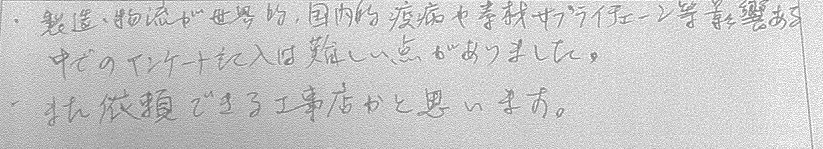 ・製造、物流が世界的、国内的疫病や素材サプライチェーン等影響ある
中でのアンケート記入は難しい点がありました。
・また依頼できる工事店かと思います。